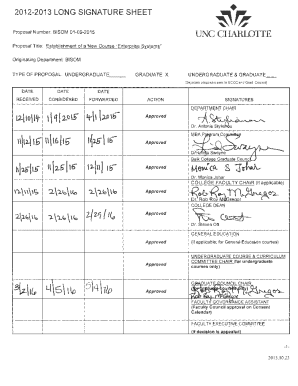 2012-2013 LONG SIGNATURE SHEET
UNC CHARLOTTE
Proposal Number: BISOM 01-09-2015
Proposal Title: "Establishment of a New Course 'Enterprise Systems'"
Originating Department: BISOM
TYPE OF PROPOSAL: UNDERGRADUATE GRADUATE X UNDERGRADUATE & GRADUATE
(Separate proposals sent to UCCC and Grad. Council)
DATE RECEIVED DATE CONSIDERED DATE FORWARDED ACTION SIGNATURES
12/10/14 1/9/2015 4/1/2015 Approved
DEPARTMENT CHAIR
Dr. Antonis Stylianou
11/12/15 11/16/15 11/25/15 Approved
MBA Program
11/25/15 11/25/15 12/11/15 Approved
Belk College Graduate Council
Monica S Johar
Dr. Monica Johar
12/11/15 2/26/16 2/26/16 Approved
COLLEGE FACULTY CHAIR (if applicable)
Rob Roy McGregor
Dr. Rob Roy McGregor
2/26/16 2/26/16 2/29/16 Approved
COLLEGE DEAN
Dr. Steven Ott
Approved
GENERAL EDUCATION
(if applicable; for General Education courses)
Approved
UNDERGRADUATE COURSE & CURRICULUM COMMITTEE CHAIR (for undergraduate courses only)
3/2/16 4/5/16 5/4/16 Approved
GRADUATE COUNCIL CHAIR
Rob Roy McGregor
Approved
FACULTY GOVERNANCE ASSISTANT
(Faculty Council approval on Consent Calendar)
FACULTY EXECUTIVE COMMITTEE
(if decision is appealed)
-1-